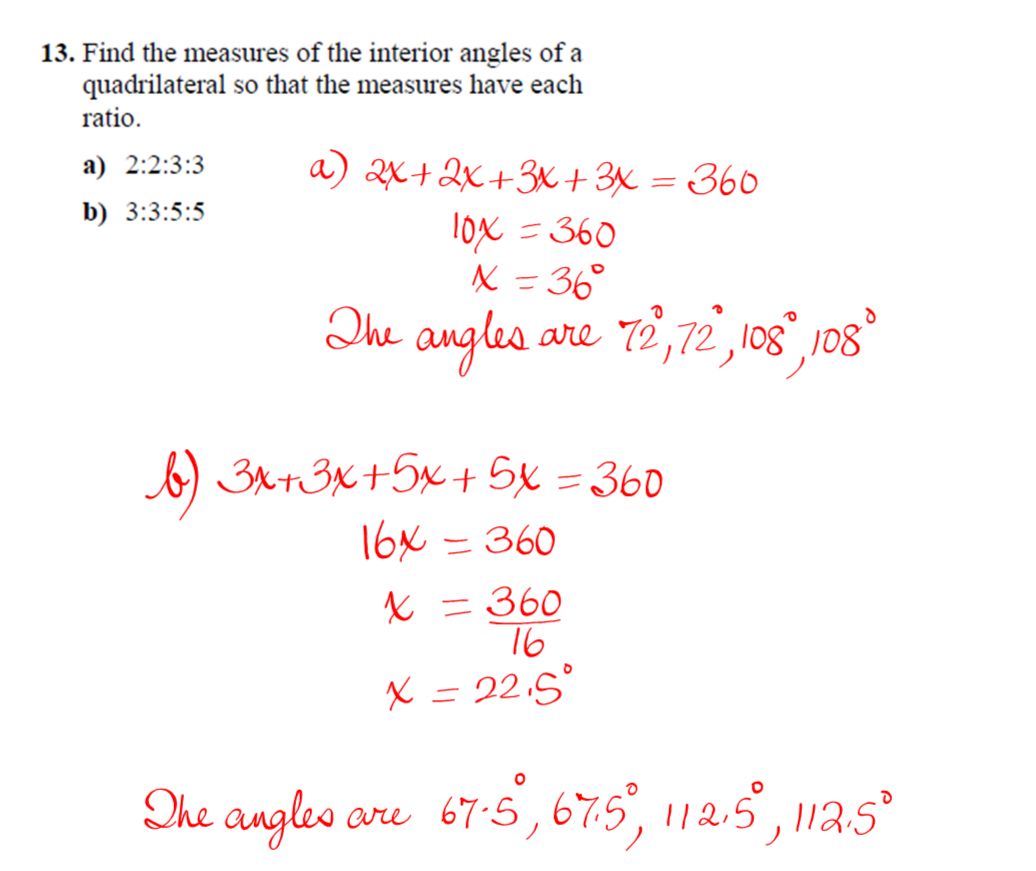 13. Find the measures of the interior angles of a
quadrilateral so that the measures have each
ratio.
a) 2:2:3:3
b) 3:3:5:5
a) 2x + 2x + 3x + 3x = 360
10x = 360
x = 36°
The angles are 72°, 72°, 108°, 108°
b) 3x+3x+5x+ 5x = 360
16x = 360
x = 360/16
x = 22.5°
The angles are 67.5°, 67.5°, 112.5°, 112.5°